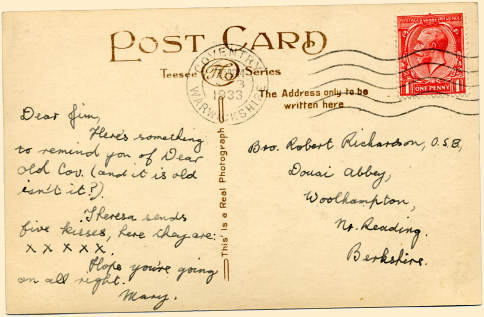 POST CARD
Teesee Series
COVENTRY
WARWICKSHIRE
1933
The Address only to be
written here
POSTAGE REVENUE
ONE PENNY
1 1
Dear Jim,
Here's something
to remind you of Dear
old Cov. (and it is old
isn't it?).
Theresa sends
five kisses, here they are:
x x x x x.
Hope you're going
on all right.
Mary.
This is a Real Photograph
Bro. Robert Richardson, O.S.B,
Douai Abbey,
Woolhampton,
Nr. Reading.
Berkshire.